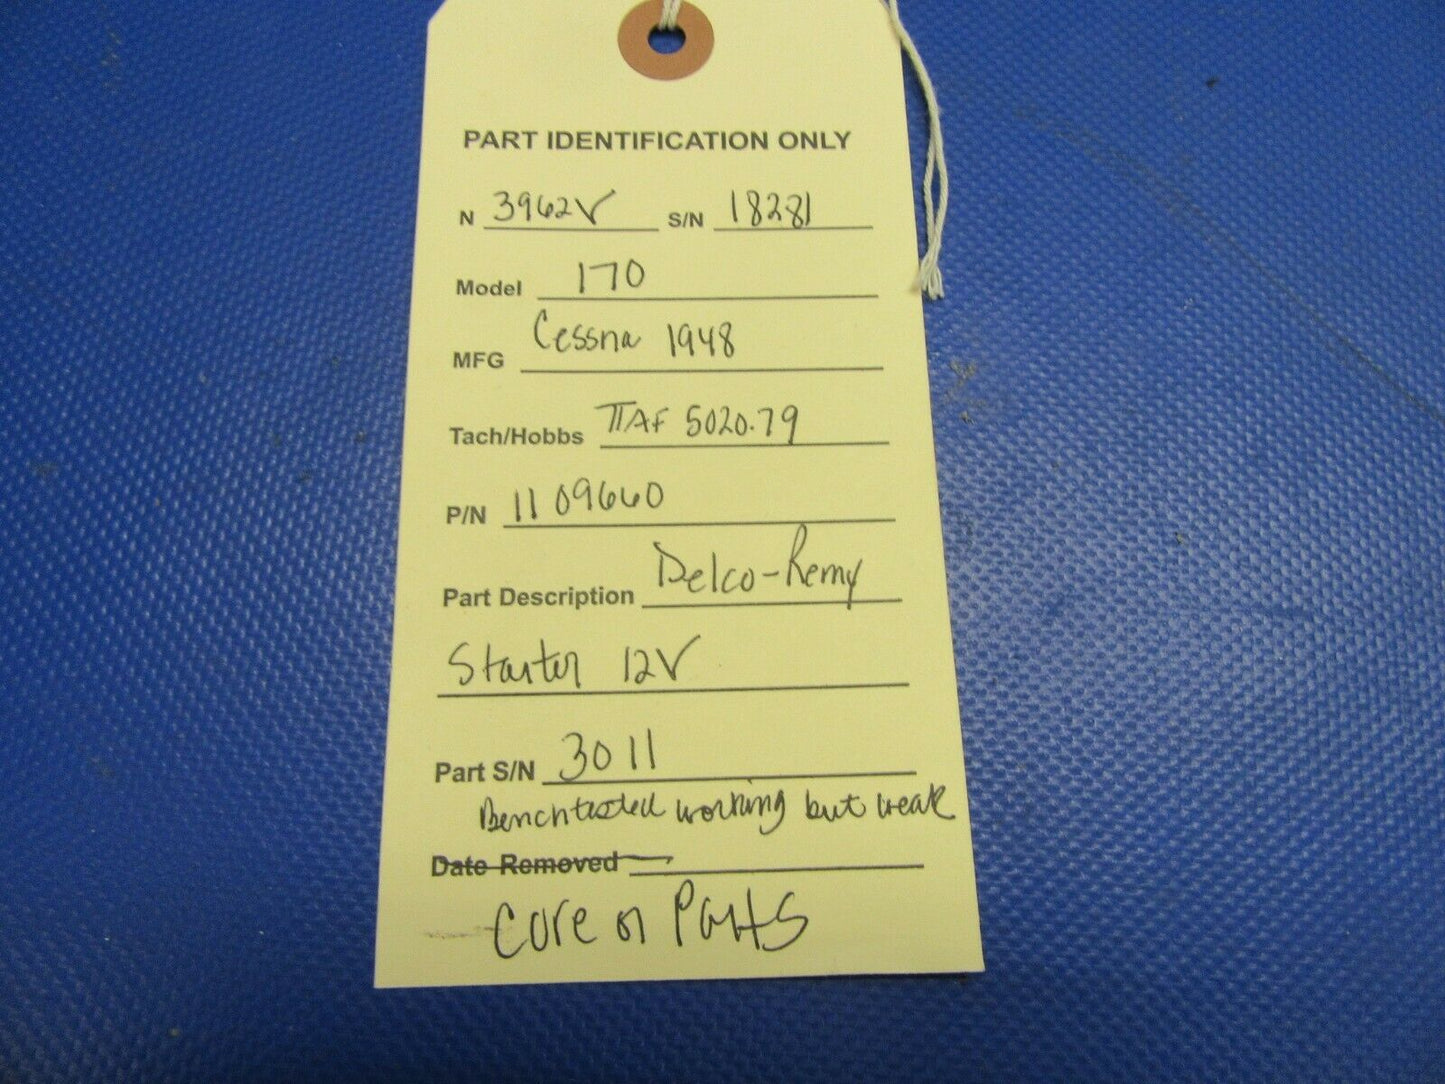 PART IDENTIFICATION ONLY
N 3962V S/N 18281
Model 170
MFG Cessna 1948
Tach/Hobbs TTAF 5020.79
P/N 1109660
Part Description Delco-Remy
Starter 12V
Part S/N 3011
Benchtested working but weak
Date Removed
Core or Parts